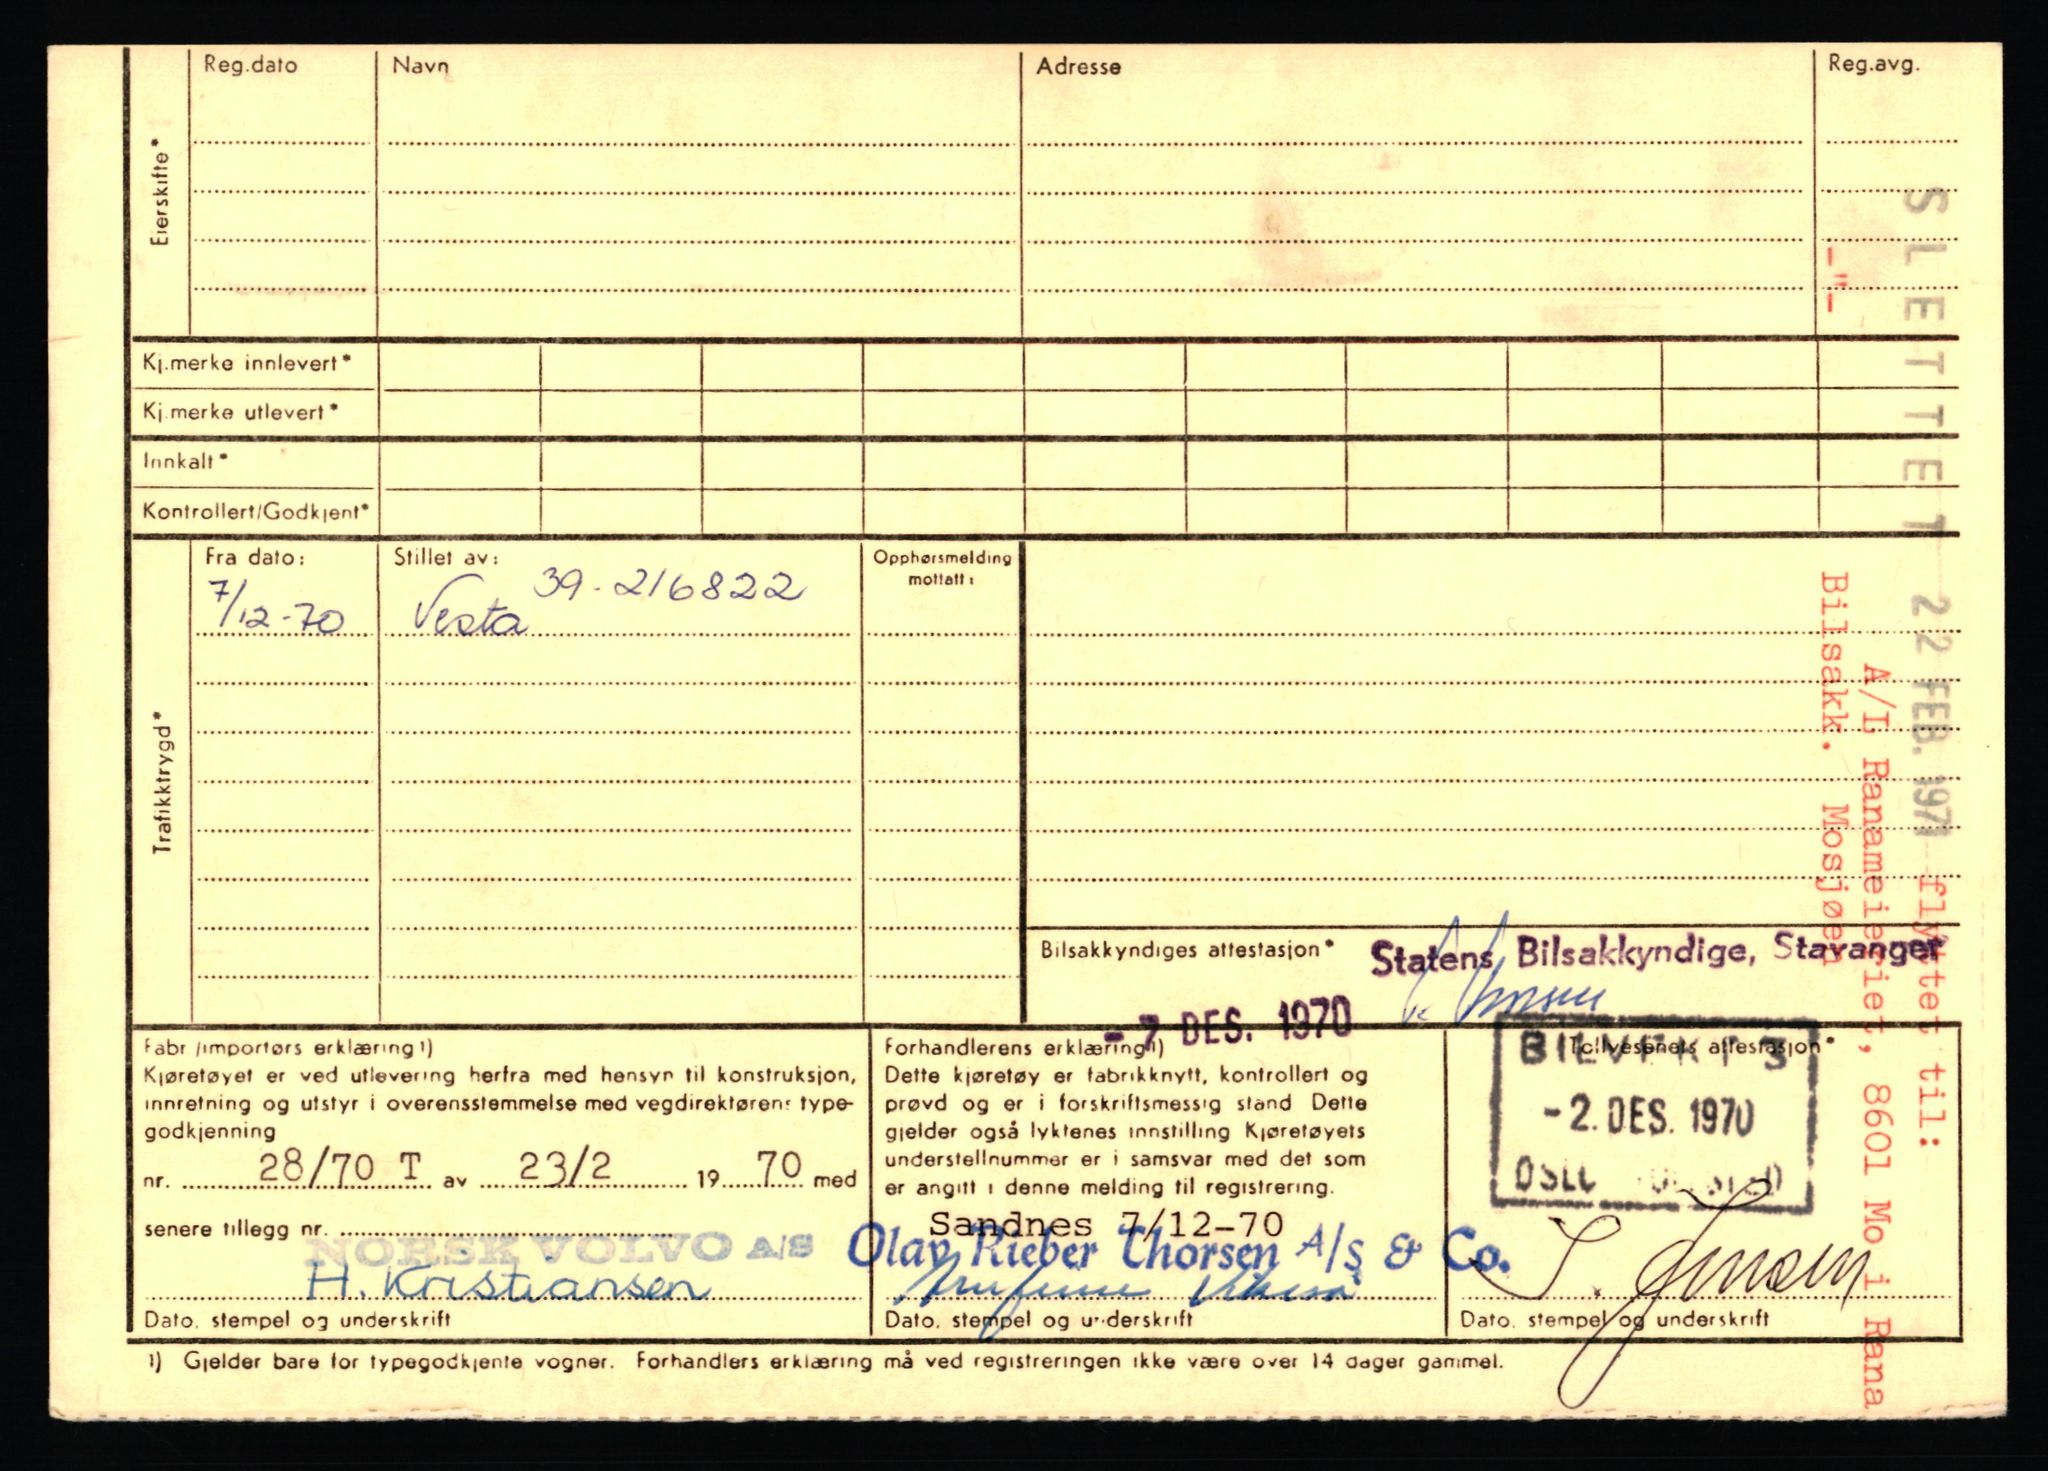 Reg.dato Navn Adresse Reg.avg.
Eierskifte*
Kj.merke innlevert*
Kj.merke utlevert*
Innkalt*
Kontrollert/Godkjent*
Trafikktrygd*
Fra dato: Stillet av: Opphørsmelding
mottatt:
7/12-70 Vesta 39-216822
SLETTET 22 FEB. 1971 flyttet til:
A/L Ranameieriet, 8601 Mo i Rana
Bilsakk. Mosjøen
-"-
Bilsakkyndiges attestasjon* Statens Bilsakkyndige, Stavanger
- 7 DES. 1970
Fabr./importørs erklæring 1)
Kjøretøyet er ved utlevering herfra med hensyn til konstruksjon,
innretning og utstyr i overensstemmelse med vegdirektørens type-
godkjenning
nr. 28/70 T av 23/2 19 70 med
senere tillegg nr.
NORSK VOLVO A/S
H. Kristiansen
Dato, stempel og underskrift
Forhandlerens erklæring 1)
Dette kjøretøy er fabrikknytt, kontrollert og
prøvd og er i forskriftsmessig stand Dette
gjelder også lyktenes innstilling Kjøretøyets
understellnummer er i samsvar med det som
er angitt i denne melding til registrering.
Sandnes 7/12-70
Olav Rieber Thorsen A/S & Co.
Dato, stempel og underskrift
Tollvesenets attestasjon*
-2. DES. 1970
OSLO
Dato, stempel og underskrift
1) Gjelder bare for typegodkjente vogner. Forhandlers erklæring må ved registreringen ikke være over 14 dager gammel.